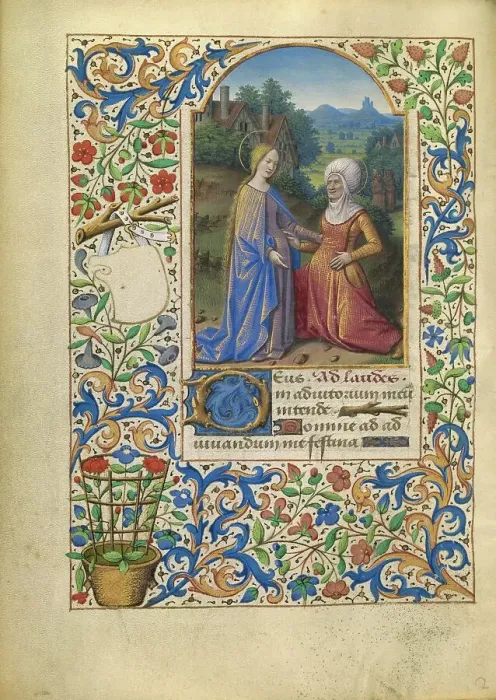 Deus. Ad laudes.
in adiutorium meū
intende.
Domine ad ad
iuuandum me festina